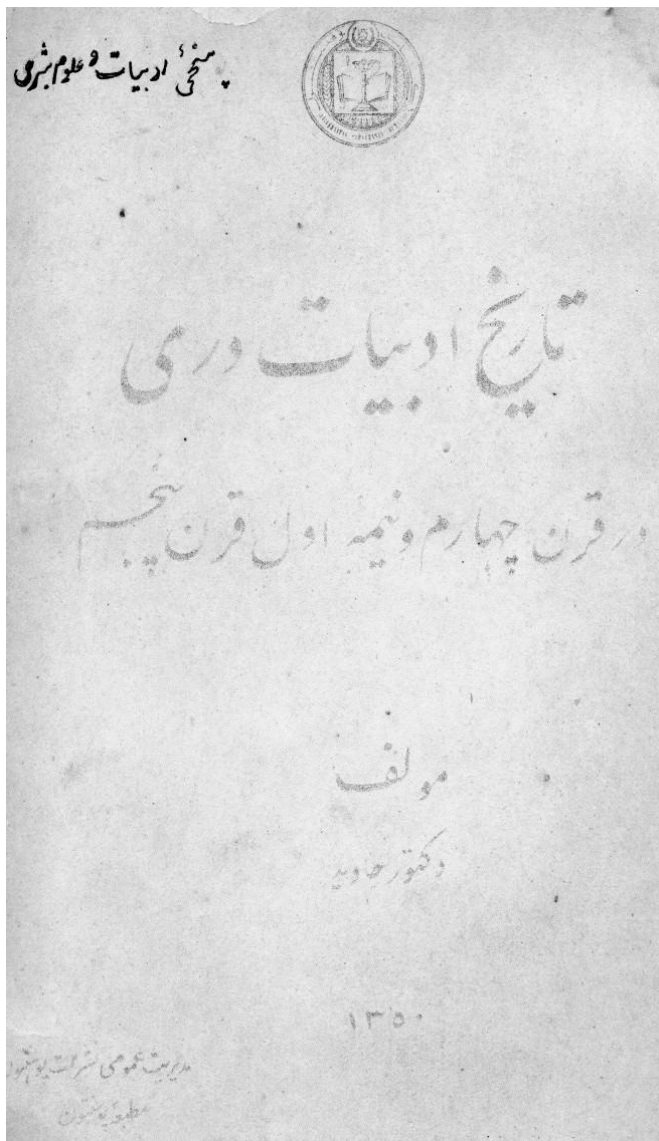 پوهنځیٔ ادبیات و علوم بشری
تاریخ ادبیات دری
در قرن چهارم و نیمه اول قرن پنجم
مولف
دکتور جاوید
۱۳۵۰
مدیریت عمومی نشرات پوهنتون
مطبعه پوهنتون